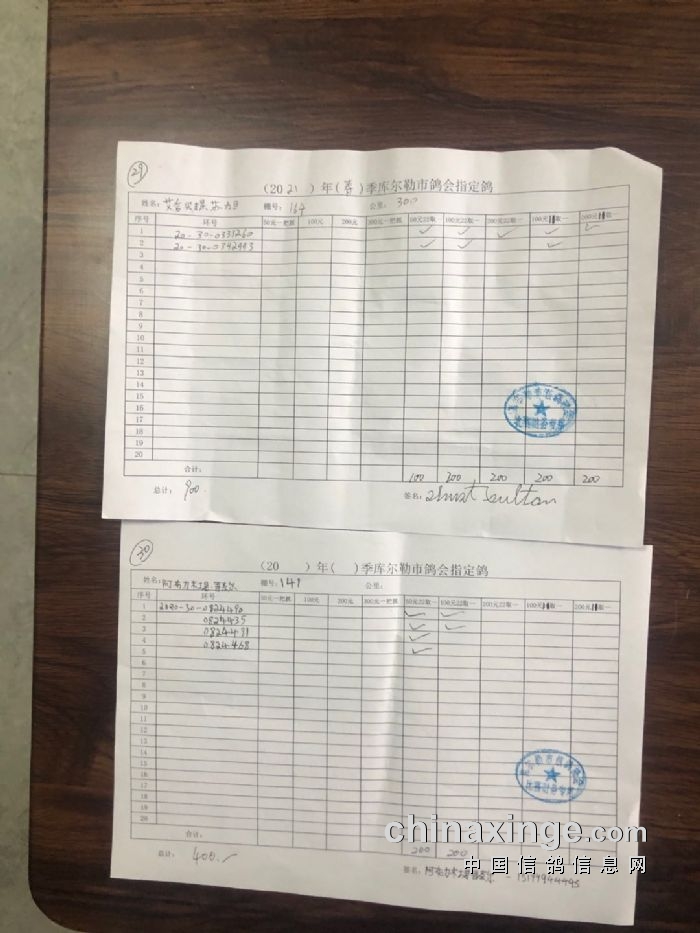 29
(20 21 ) 年 (春) 季库尔勒市鸽会指定鸽
姓名: 棚号: 164 公里: 300
序号 环号 50元一把抓 100元 200元 300元一把抓 50元22取一 100元22取一 200元22取一 100元 取一 200元 取一
1 20-30-0331260 ✓ ✓ ✓ ✓ ✓
2 20-30-0342443 ✓ ✓ ✓
3
4
5
6
7
8
9
10
11
12
13
14
15
16
17
18
19
20
合计: 100 200 200 200 200
总计: 900. 签名:
30
(20 ) 年 ( ) 季库尔勒市鸽会指定鸽
姓名: 棚号: 141 公里:
序号 环号 50元一把抓 100元 200元 300元一把抓 50元22取一 100元22取一 200元22取一 100元 取一 200元 取一
1 2020-30-0824490 ✓ ✓
2 0824435 ✓ ✓
3 0824431 ✓
4 0824468 ✓
5
6
7
8
9
10
11
12
13
14
15
16
17
18
19
20
合计: 200 200
总计: 400.- 签名:
chinaxinge.com
中国信鸽信息网